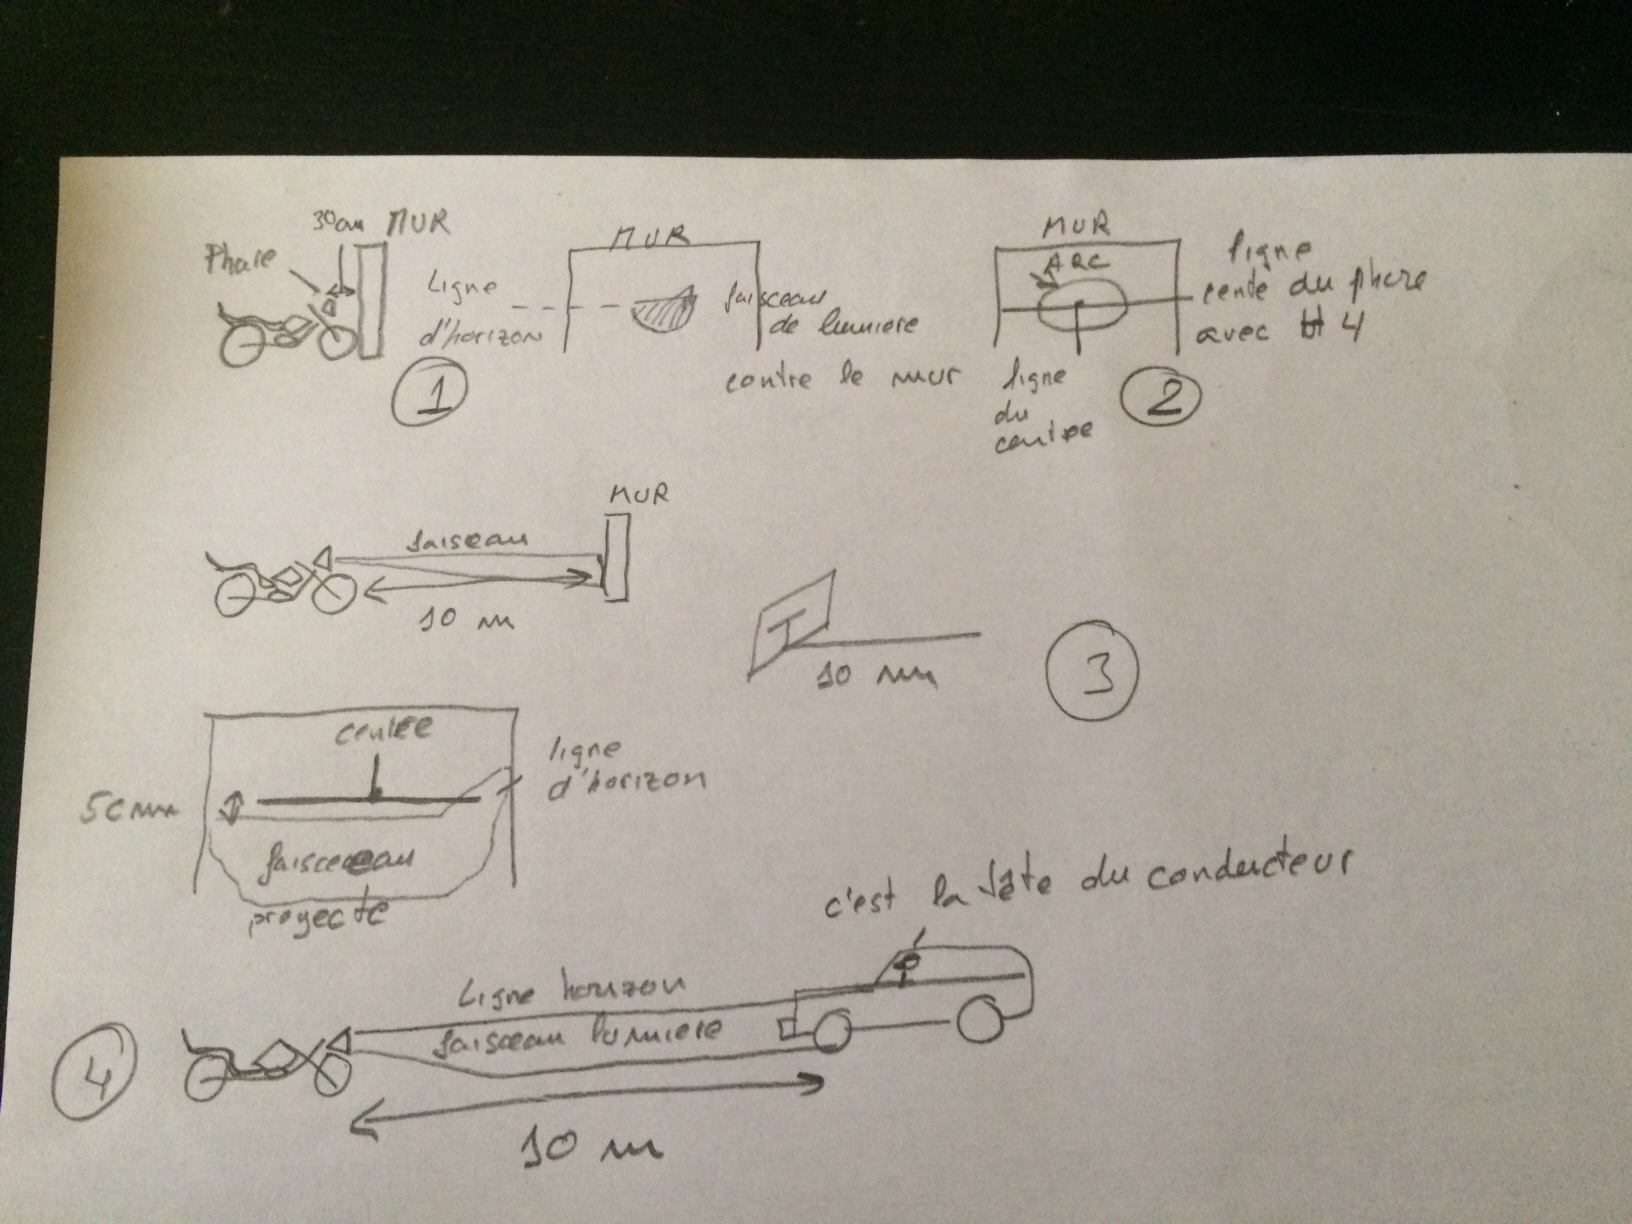 30cm MUR
Phare
MUR
ligne
d'horizon
faisceau
de lumiere
contre le mur
1
MUR
ARC
ligne
cente du phare
avec H4
ligne
du
centre
2
MUR
faiseau
10 m
10 m
3
centre
ligne
d'horizon
5 cm
faisceau
proyecte
c'est la tête du conducteur
Ligne horizon
faisceau lumiere
4
10 m